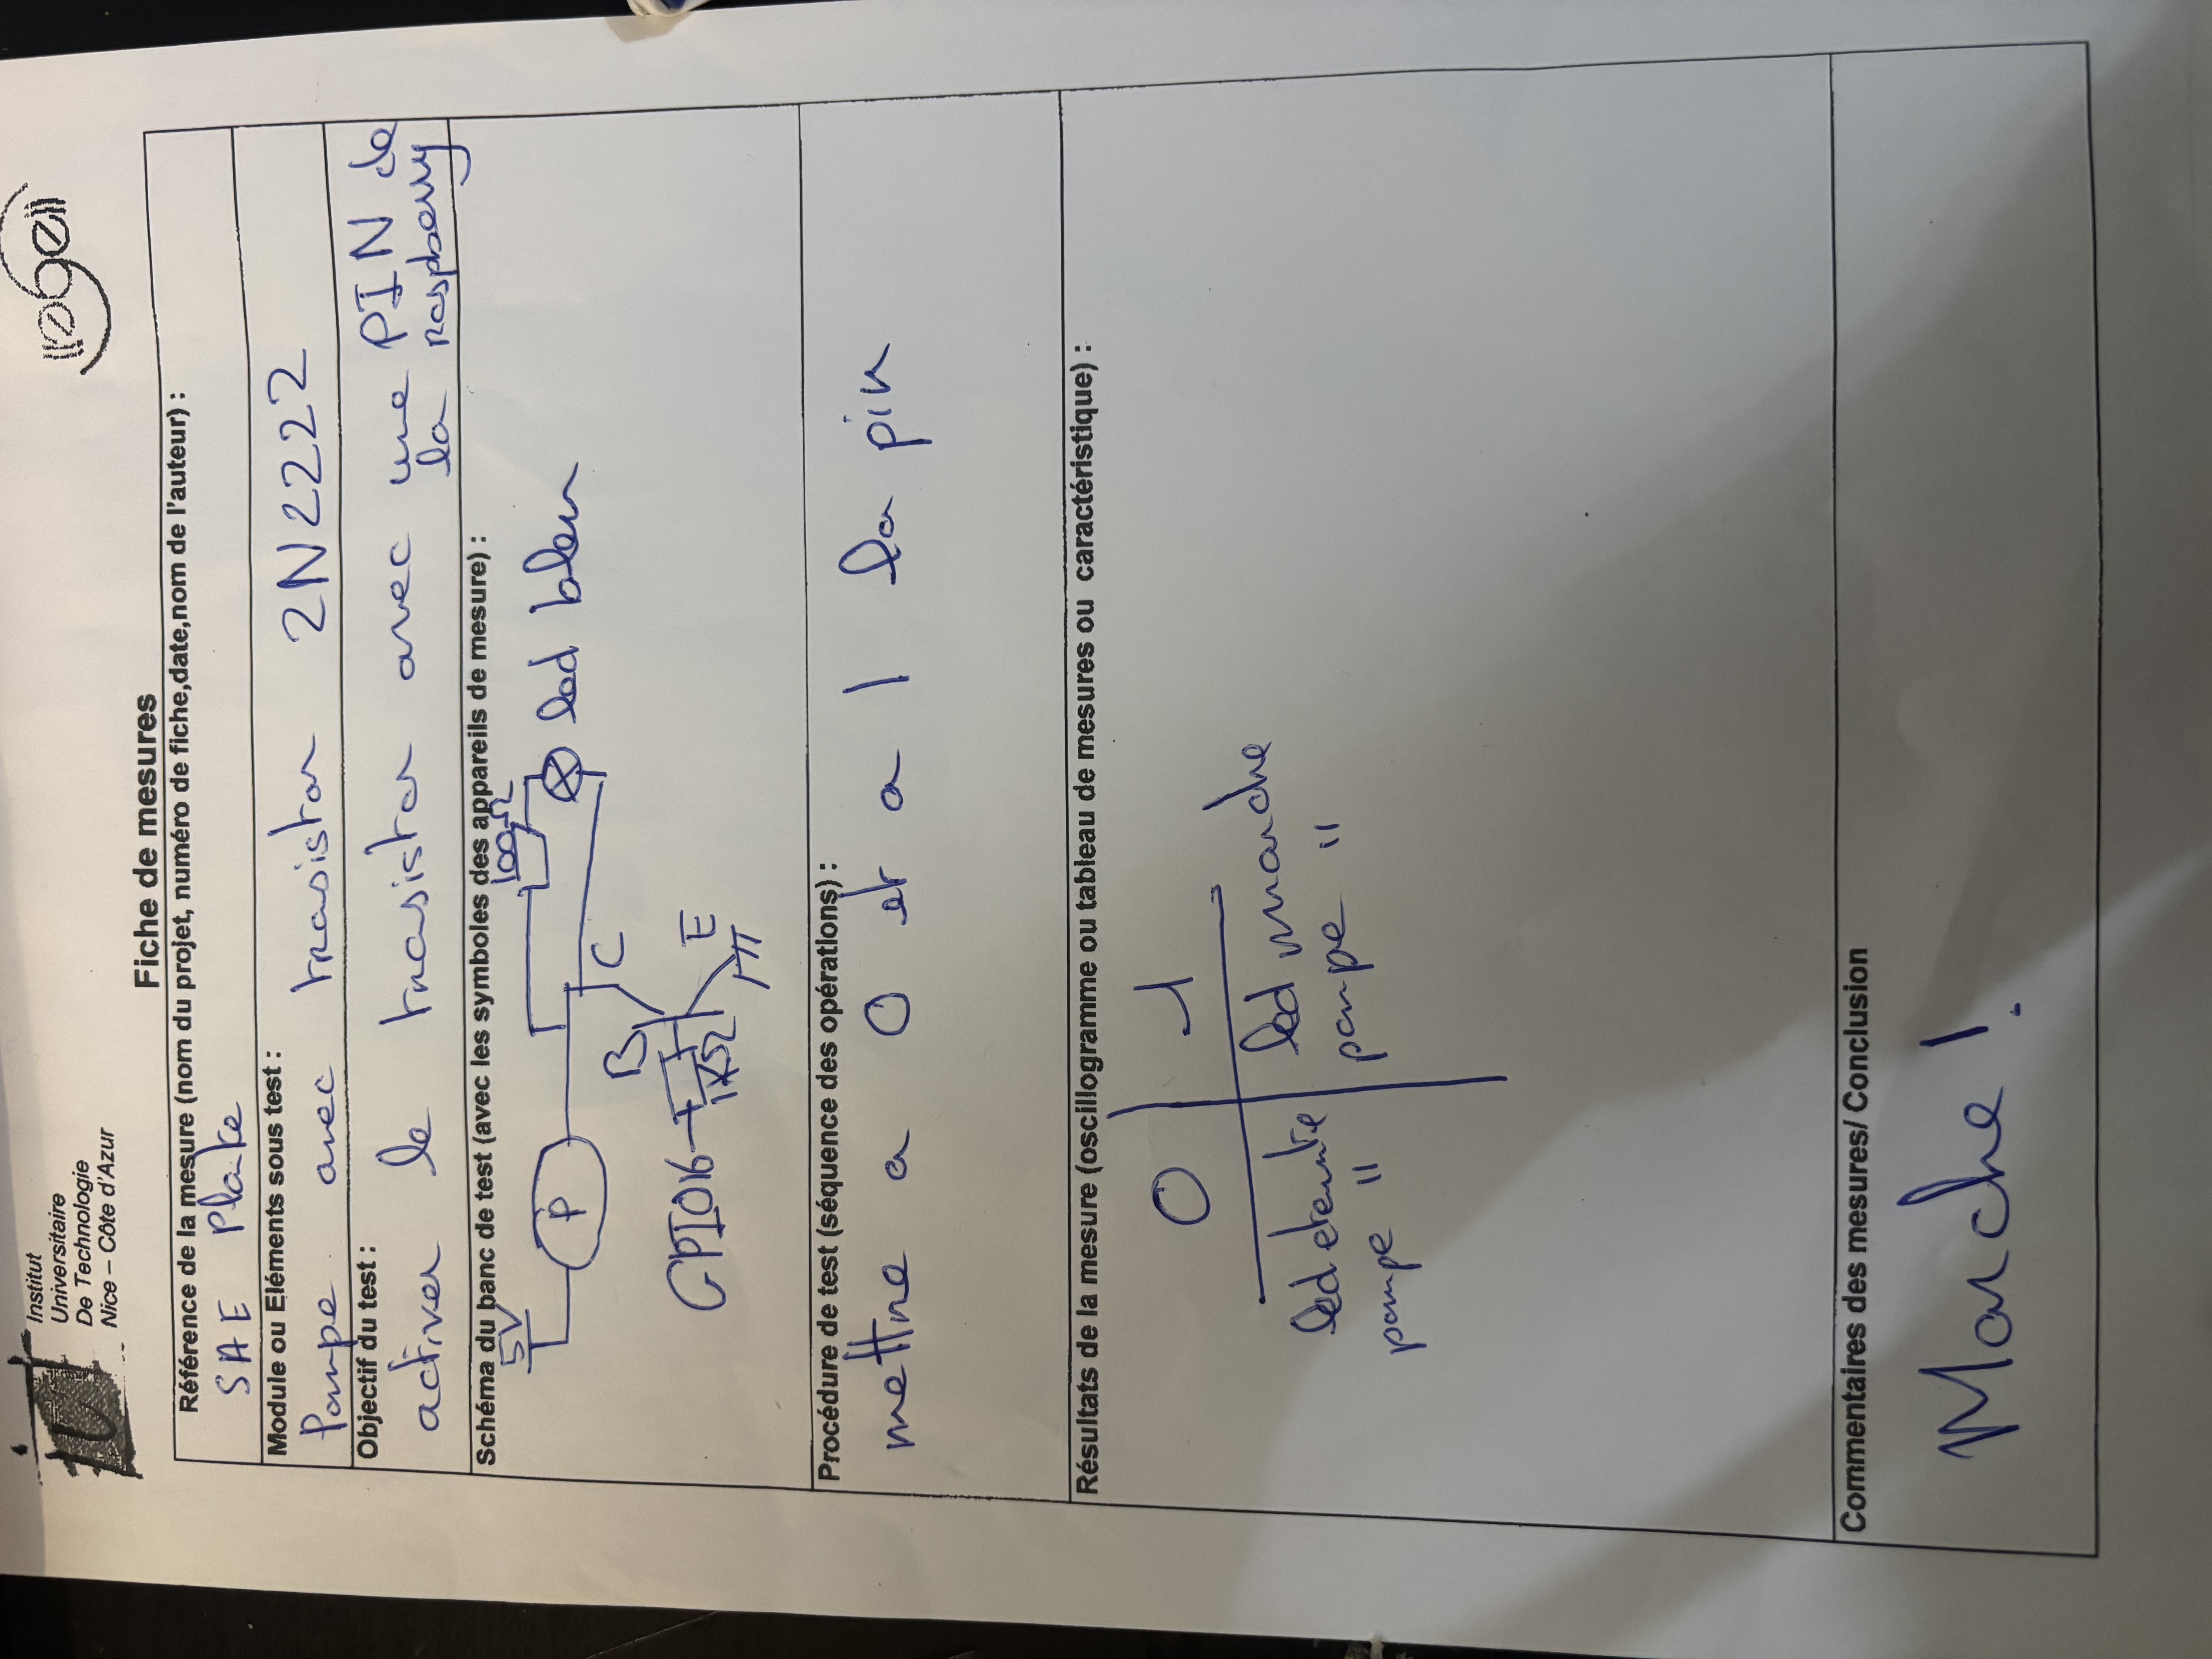 Institut
Universitaire
De Technologie
Nice – Côte d'Azur
Fiche de mesures
Référence de la mesure (nom du projet, numéro de fiche,date,nom de l'auteur) :
SAE Plante
Module ou Eléments sous test :
Pompe avec trasistor 2N2222
Objectif du test :
activer le trasistor avec une PIN de
la Raspberry
Schéma du banc de test (avec les symboles des appareils de mesure) :
5V
100Ω
P
led bleu
B
C
GPIO16
1KΩ
E
Procédure de test (séquence des opérations) :
mettre a 0 et a 1 la pin
Résultats de la mesure (oscillogramme ou tableau de mesures ou caractéristique) :
0 1
led eteinte led marche
pompe " pompe "
Commentaires des mesures/ Conclusion
Marche !